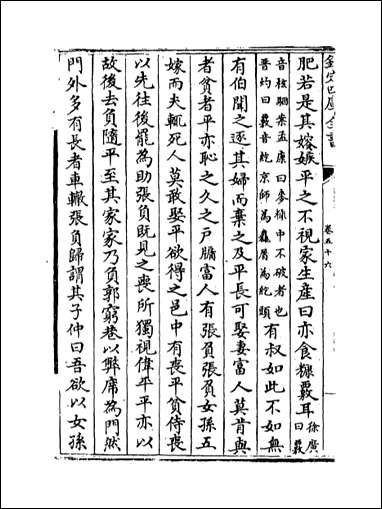 欽定四庫全書
卷五十六
肥若是其嫂嫉平之不視家生産曰亦食糠覈耳徐廣曰覈
音核駰案孟康曰麥糠中不破者也
晉灼曰覈音紇京師為麤屑為紇頭
有叔如此不如無
有伯聞之逐其婦而棄之及平長可娶妻富人莫肯與
者貧者平亦恥之久之户牖富人有張負張負女孫五
嫁而夫輒死人莫敢娶平欲得之邑中有喪平貧侍喪
以先往後罷為助張負既見之喪所獨視偉平平亦以
故後去負隨平至其家家乃負郭窮巷以弊席為門然
門外多有長者車轍張負歸謂其子仲曰吾欲以女孫